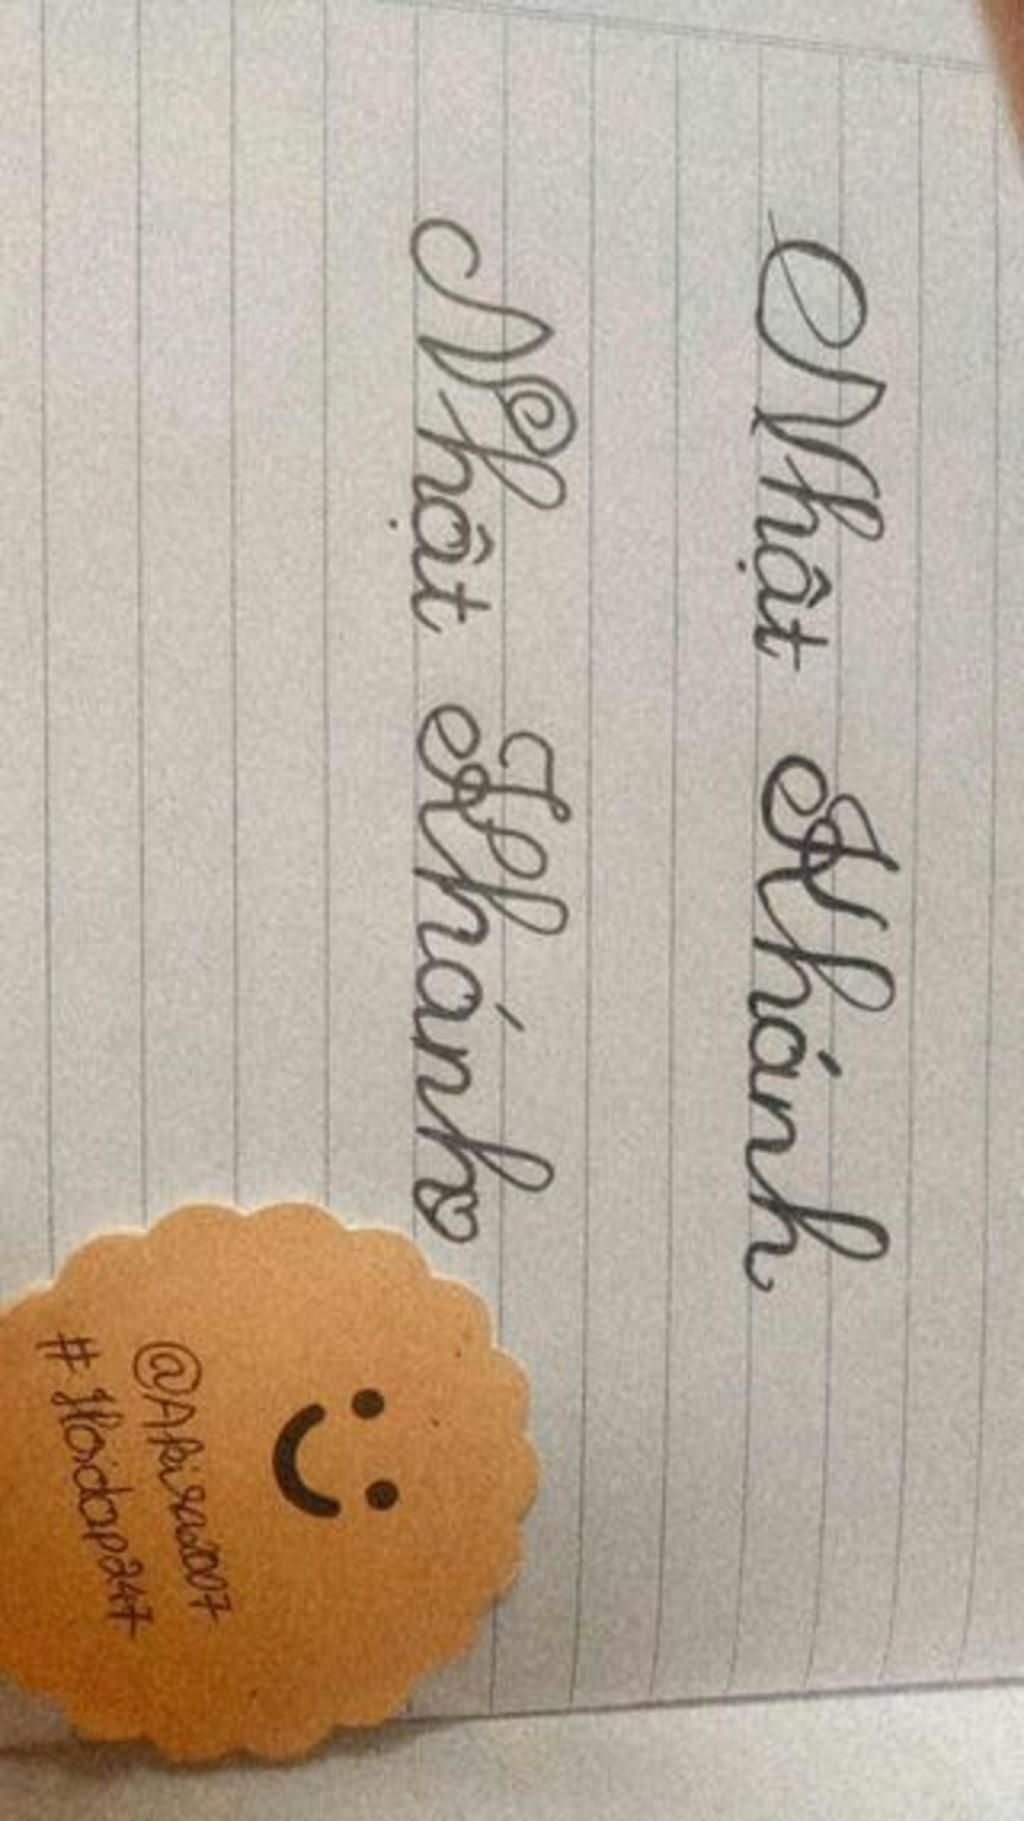 Nhật Khánh
Nhật Khánh
@Akirawo07
#Hoidap247